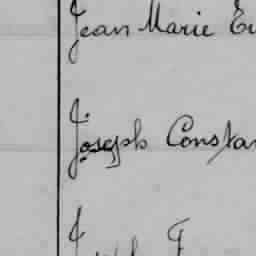 Jean Marie Eu
Joseph Constan
J